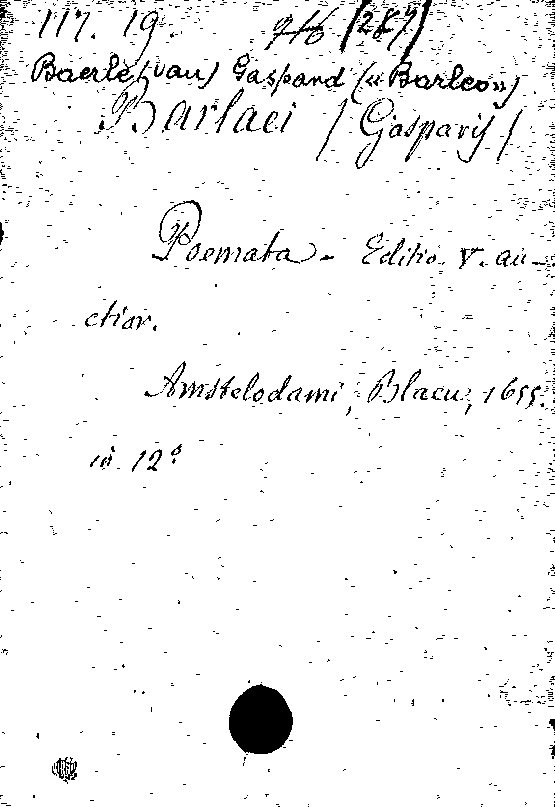 117. 19. 916 (287)
Baerle (van) Gaspard («Barleo»)
Barlaei (Gasparis)
Poemata - Editio V. au-
ctior.
Amstelodami, Blaeu, 1655.
in 12º